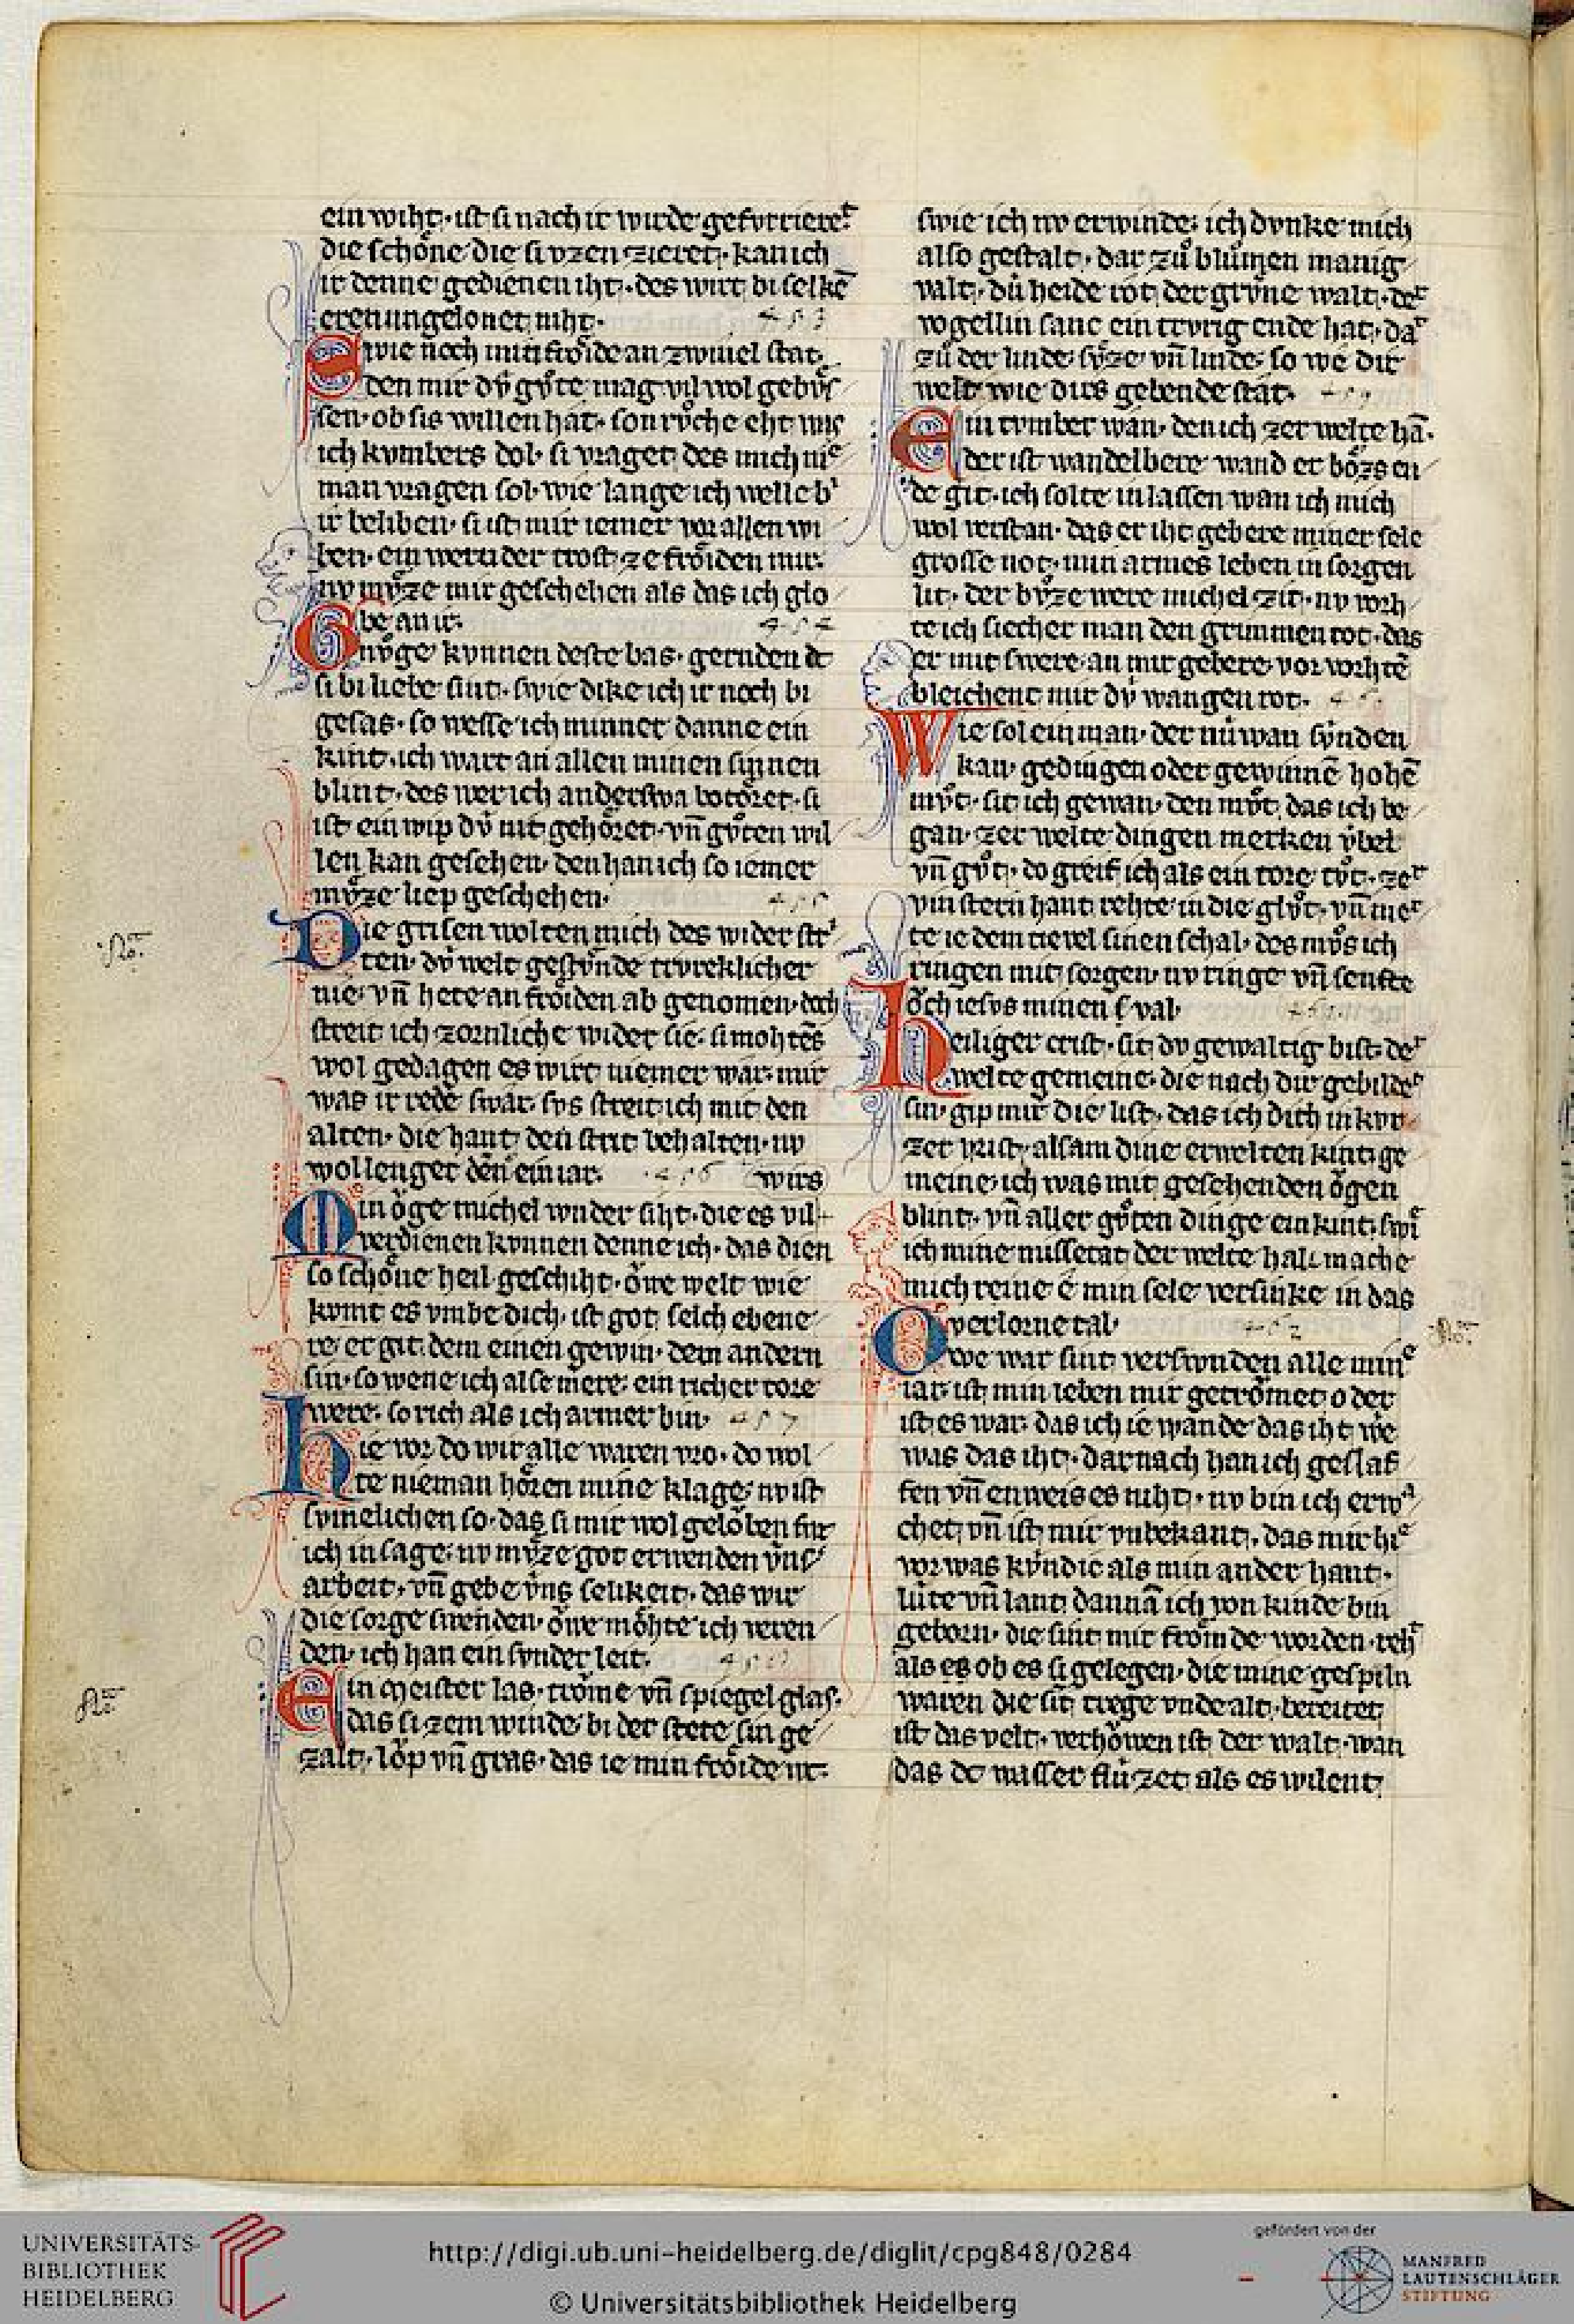 ein wiht· ist si nach ir wirde gefvrrieret
die schoͤne die si vzen zieret· kan ich
ir denne gedienen iht· des wirt bi selkē
eren vngelonet niht· 453
Swie noch min froͤide an zwiuel stat
den mir dv̍ gvͦte mag vil wol gebvͤs/
sen· ob sis willen hat· son rvͦche eht wes
ich kvmbers dol· si vraget des mich nie/
man vragen sol· wie lange ich welle bi
ir beliben· si ist mir iemer vor allen wi/
ben· ein wernder trost ze froͤiden mir·
nv mvͤze mir geschehen als das ich glo/
be an ir· 454
Gnvͦge kvnnen deste bas· gerʼden dc
si bi liebe sint· swie dike ich ir noch bi
gesas· so wesse ich minner danne ein
kint· ich wart an allen minen sinnen
blint· des wer ich anderswa betoͤret· si
ist ein wip dv̍ nit gehoͤret· vn̄ gvͦten wil/
len kan gesehen· den han ich so iemer
mvͤze liep geschehen· 455
No.
Die grisen wolten mich des wider stri/
ten· dv̍ welt gestvͤnde trvreklicher
nie· vn̄ hete an froͤiden ab genomen· doch
streit ich zornliche wider sie· si mohtēs
wol gedagen es wirt niemer war· mir
was ir rede swar· svs streit ich mit den
alten· die hant den strit behalten· nv
wol lenger dēn ein iar· 456 wirs
Min oͮge michel wnder siht· die es vil/
verdienen kvnnen denne ich· das dien
so schoͤne heil geschiht· oͮwe welt wie
kvmt es vmbe dich· ist got selch ebene/
re· er git dem einen gewin· dem andern
sin· so wene ich alse mere· ein richer tore
were· so rich als ich armer bin· 457
Hie vor do wir alle waren vro· do wol/
te nieman hoͤren mine klage· nv ist
svmelichen so· das si mir wol geloͮben swc
ich in sage· nv mvͤze got erwenden v̍ns/
arbeit· vn̄ gebe v̍ns selikeit· das wir
die sorge swenden· oͮwe moͤhte ich veren/
den· ich han ein svnder leit· 458
No.
Ein meister las· troͮme vn̄ spiegel glas·
das si zem winde· bi der stete sin ge/
zalt· loͮp vn̄ gras· das ie min froͤide we:
swie ich nv erwinde· ich dvnke mich
also gestalt· dar zvͦ blvͦmen manig/
valt· dv̍ heide rot der grvͤne walt· der
vogellin sanc ein trvrig ende hat· dar
zvͦ der linde· svͤze vn̄ linde· so we dir
welt wie dirs gebende stat· 459
Ein tvmber wan· den ich zer welte hā·
der ist wandelbere· wand er boͤzs en/
de git· ich solte in lassen wan ich mich
wol verstan· das er iht gebere miner sele
grosse not· min armes leben in sorgen
lit· der bvͦze were michel zit· nv vorh/
te ich siecher man den grimmen tot· das
er mit swere· an mir gebere· vor vorhtē
bleichent mir dv̍ wangen rot· 460
Wie sol ein man· der nu̍wan sv̍nden
kan· gedingen oder gewinnē hohē
mvͦt· sit ich gewan· den mvͦt das ich be/
gan· zer welte dingen merken v̍bel
vn̄ gvͦt· do greif ich als ein tore tvͦt· zer
vinstern hant rehte in die glvͦt· vn̄ mer/
te ie dem tievel sinen schal· des mvͦs ich
ringen mit sorgen· nv ringe vn̄ senfte
oͮch iesvs minen val· 461
Heiliger crist· sit dv gewaltig bist· der
welte gemeine· die nach dir gebildet
sin· gip mir die list· das ich dich in kvr/
zer vrist· alsam dine erwelten kint ge/
meine· ich was mit gesehenden oͮgen
blint· vn̄ aller gvͦten dinge ein kint· swie
ich mine missetat der welte hal· mache
mich reine e min sele versinke in das
verlorne tal· 462
No.
Owe war sint verswnden alle mine
iar· ist min leben mir getroͮmet oder
ist es war· das ich ie wande das iht we
was das iht· darnach han ich geslaf/
fen vn̄ enweis es niht· nv bin ich erwa/
chet vn̄ ist mir vnbekant· das mir hie
vor was kv̍ndic als min ander hant·
lu̍te vn̄ lant dannā ich von kinde bin
geborn· die sint mir froͤmde worden reht
als es ob es si gelegen· die mine gespiln
waren die sit trege vnde alt· bereitet
ist das velt· verhoͮwen ist der walt· wan
das dc wasser flu̍zet als es wilent
UNIVERSITÄTS-
BIBLIOTHEK
HEIDELBERG
http://digi.ub.uni-heidelberg.de/diglit/cpg848/0284
© Universitätsbibliothek Heidelberg
gefördert von der
MANFRED
LAUTENSCHLÄGER
STIFTUNG